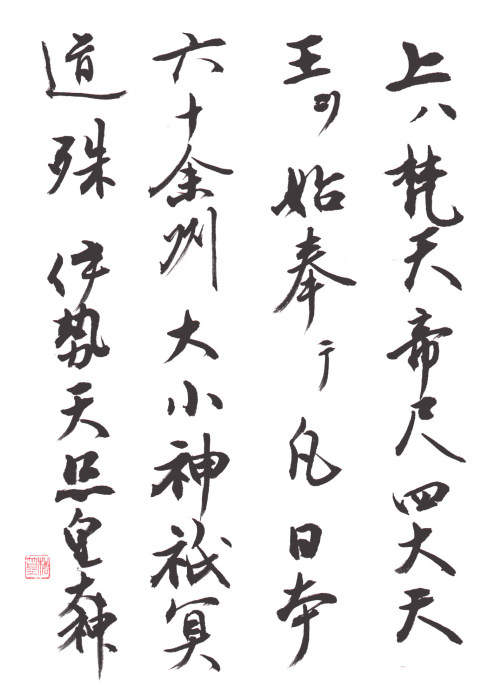 上ハ梵天帝尺四大天
王ヨリ始奉テ凡日本
六十余州大小神祇冥
道殊伊勢天照皇太神